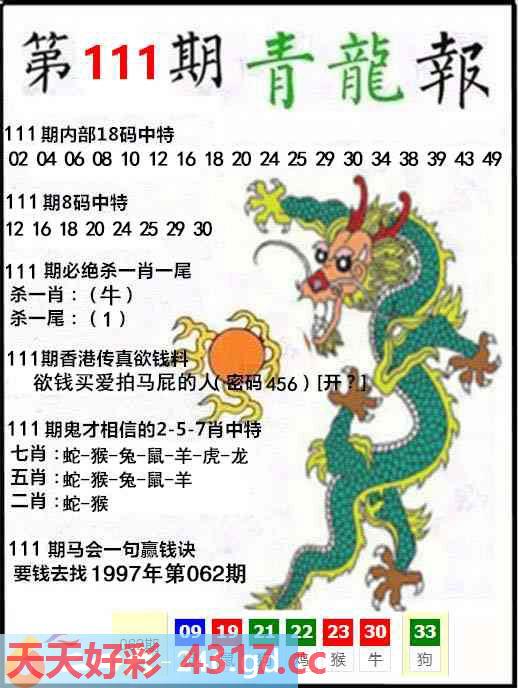 第111期青龍報
111期内部18码中特
02 04 06 08 10 12 16 18 20 24 25 29 30 34 38 39 43 49
111期8码中特
12 16 18 20 24 25 29 30
111期必绝杀一肖一尾
杀一肖：（牛）
杀一尾：（1）
111期香港传真欲钱料
欲钱买爱拍马屁的人(密码456)[开？]
111期鬼才相信的2-5-7肖中特
七肖：蛇-猴-兔-鼠-羊-虎-龙
五肖：蛇-猴-兔-鼠-羊
二肖：蛇-猴
111期马会一句赢钱诀
要钱去找1997年第062期
09 19 21 22 23 30 33
鼠 鸡 猴 牛 狗
天天好彩 4317.cc